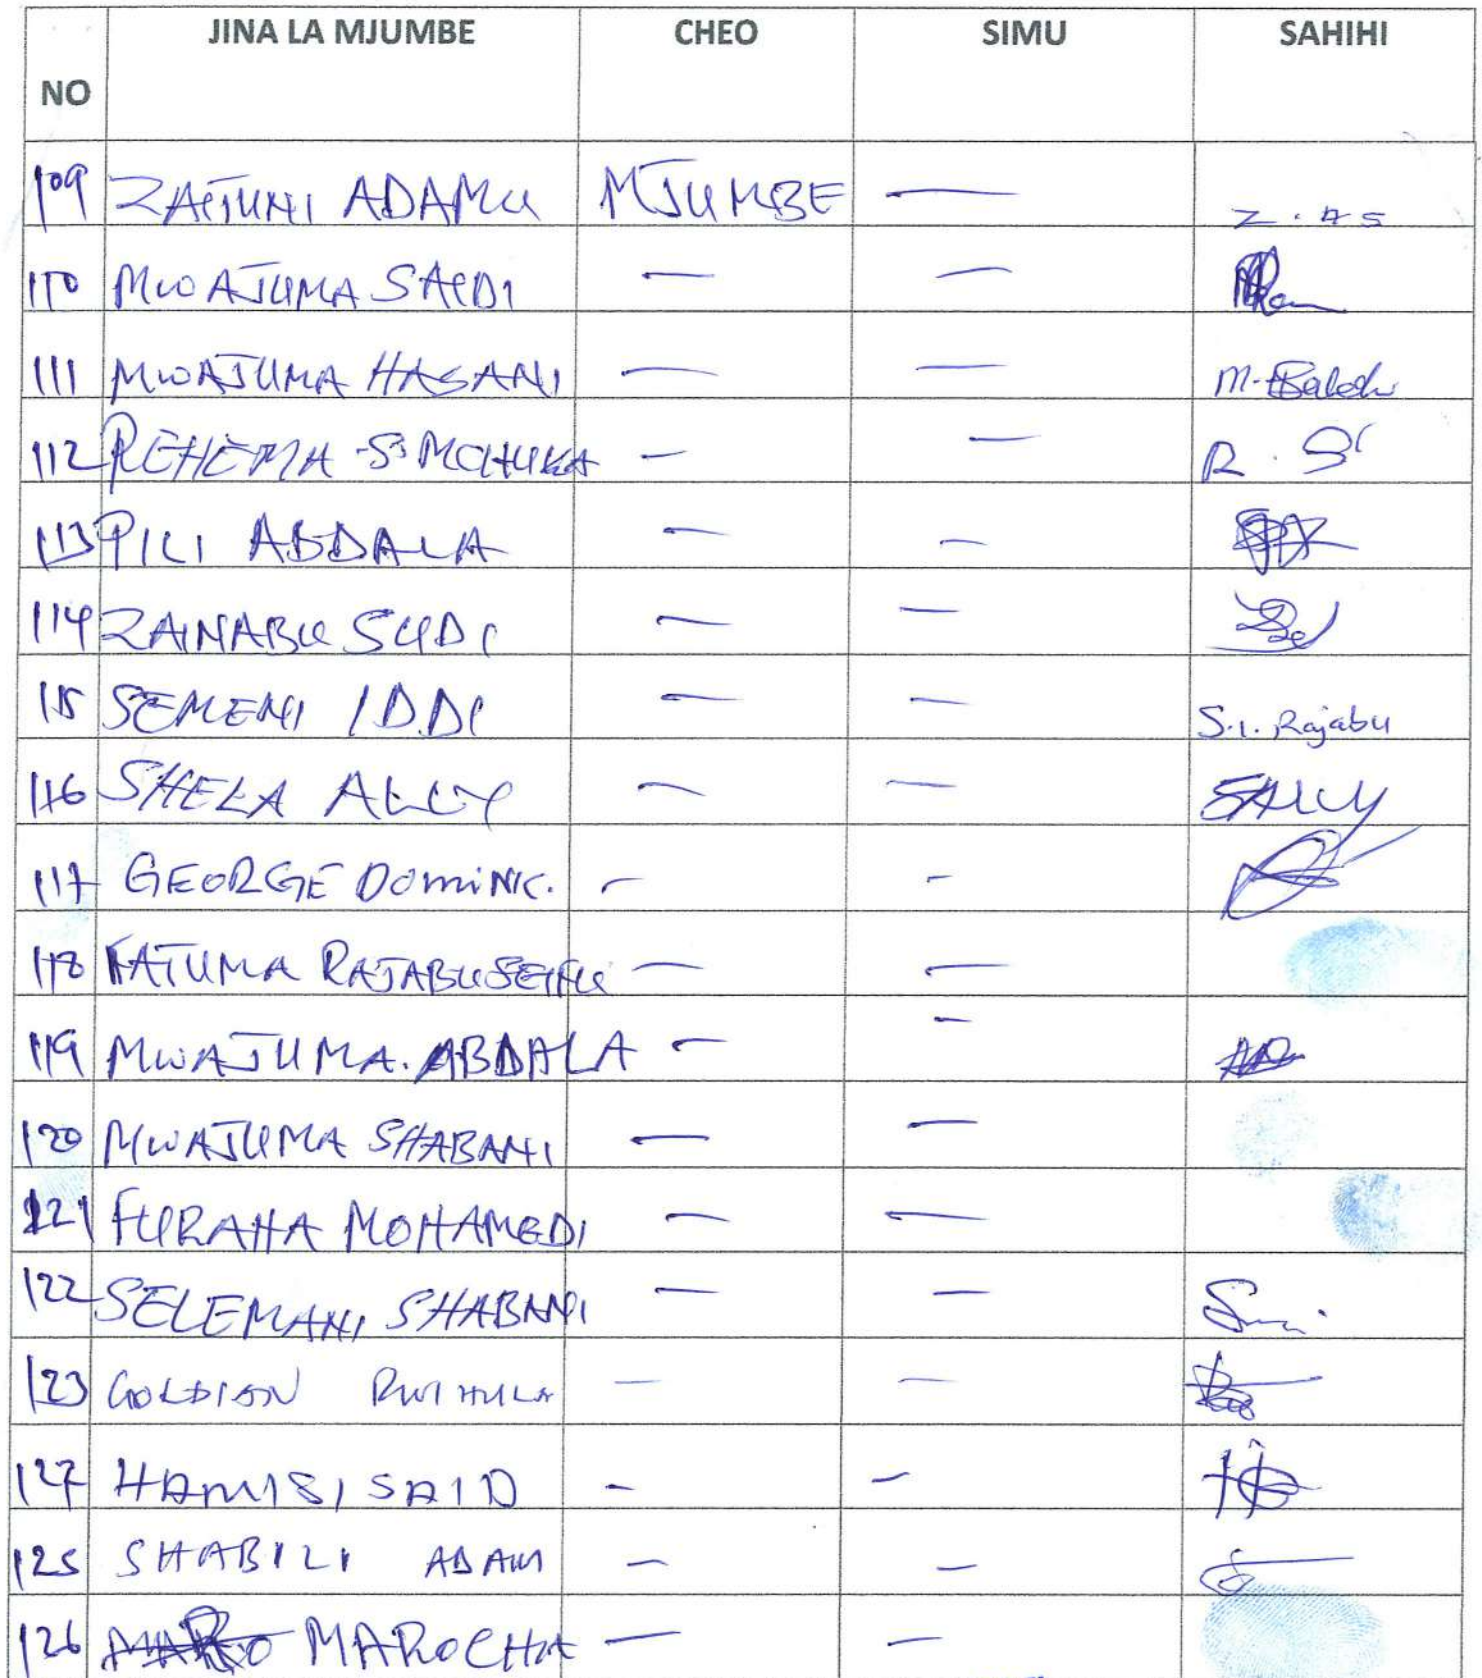 NO JINA LA MJUMBE CHEO SIMU SAHIHI
109 ZAITUNI ADAMU MJUMBE — Z. AS
110 MWAJUMA SAIDI — —
111 MWAJUMA HASANI — —
112 REHEMA S MCHUKA — — R. S
113 PILI ABDALA — —
114 ZAINABU SUDI — —
115 SEMENI IDDI — — S.I. Rajabu
116 SHELA ALLY — — SALLY
117 GEORGE DOMINIC. — —
118 FATUMA RAJABU SEIFU — —
119 MWAJUMA. ABDALA — —
120 MWAJUMA SHABANI — —
121 FURAHA MOHAMEDI — —
122 SELEMANI SHABANI — —
123 — —
127 HAMISI SAID — —
125 SHABILI ADAM — —
126 MAROCHA — —